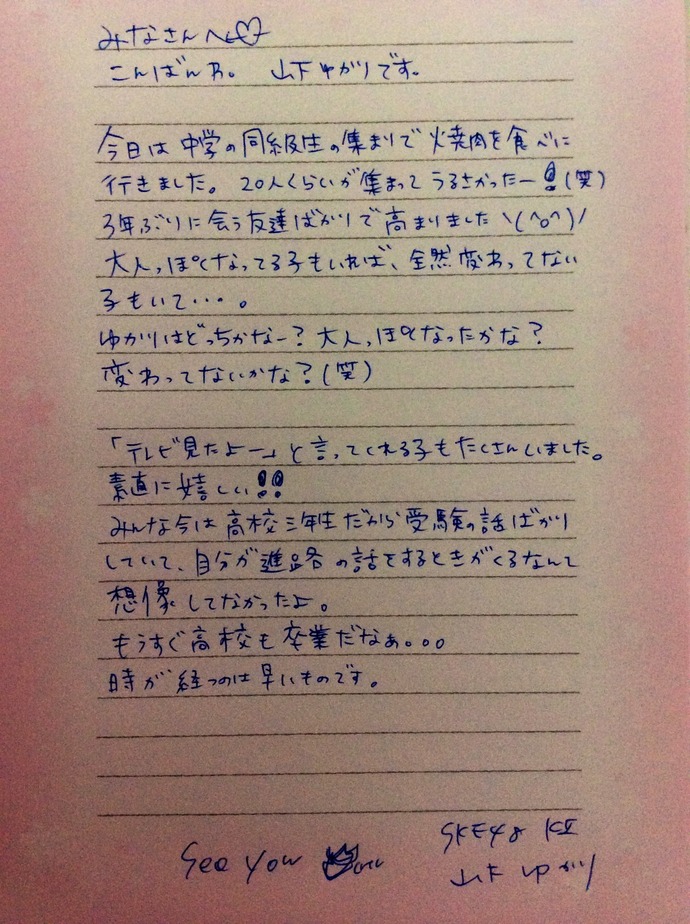 みなさんへ♡
こんばんわ。 山下ゆかりです。
今日は中学の同級生の集まりで火焼肉を食べに
行きました。 20人くらいが集まってうるさかったー!(笑)
3年ぶりに会う友達ばかりで高まりました\(^o^)/
大人っぽくなってる子もいれば、全然変わってない
子もいて・・・。
ゆかりはどっちかなー?大人っぽくなったかな?
変わってないかな?(笑)
「テレビ見たよー」と言ってくれる子もたくさんいました。
素直に嬉しい!!
みんな今は高校三年生だから受験の話ばかり
していて、自分が進路の話をするときがくるなんて
想像してなかったよ。
もうすぐ高校も卒業だなぁ。。。
時が経つのは早いものです。
See you
SKE48 KⅡ
山下ゆかり